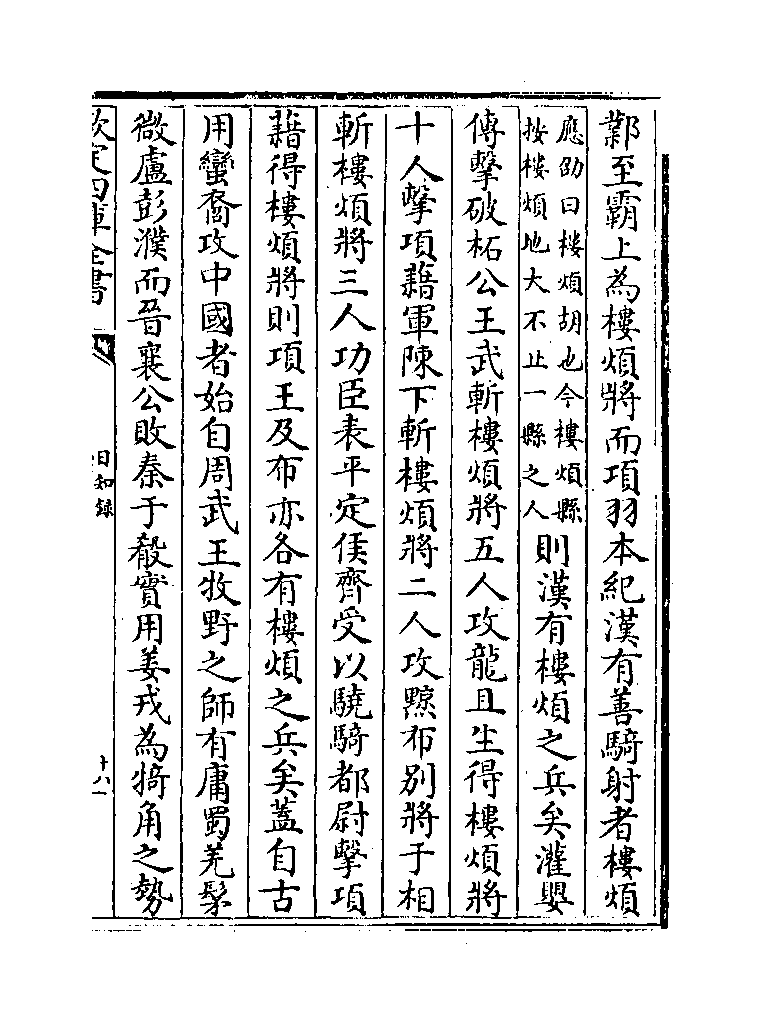 鄴至霸上為樓煩將而項羽本紀漢有善騎射者樓煩
應劭曰樓煩胡也今樓煩縣
按樓煩地大不止一縣之人
則漢有樓煩之兵矣灌嬰
傳擊破柘公王武斬樓煩將五人攻龍且生得樓煩將
十人擊項藉軍陳下斬樓煩將二人攻黥布别將于相
斬樓煩將三人功臣表平定侯齊受以驍騎都尉擊項
藉得樓煩將則項王及布亦各有樓煩之兵矣蓋自古
用蠻裔攻中國者始自周武王牧野之師有庸蜀羌髳
微盧彭濮而晉襄公敗秦于殽實用姜戎為犄角之勢
欽定四庫全書
日知録
十八